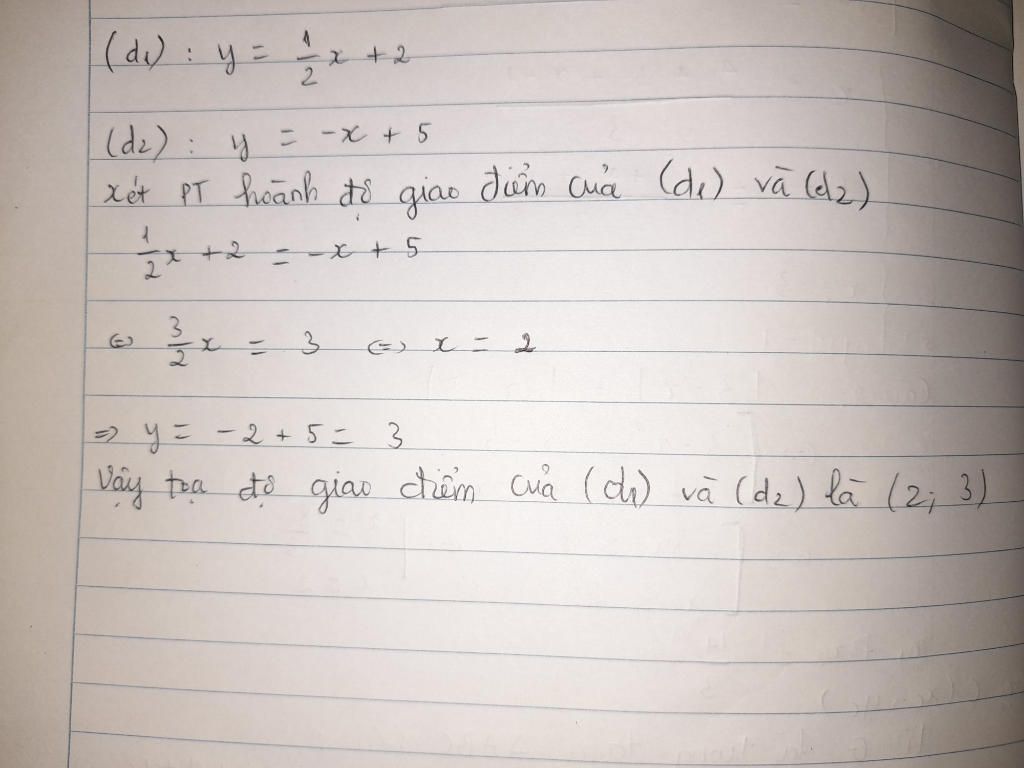 (d₁) : y = 1/2 x + 2
(d₂) : y = -x + 5
xét PT hoành độ giao điểm của (d₁) và (d₂)
1/2 x + 2 = -x + 5
⇔ 3/2 x = 3 ⇔ x = 2
⇒ y = -2 + 5 = 3
Vậy tọa độ giao điểm của (d₁) và (d₂) là (2; 3)